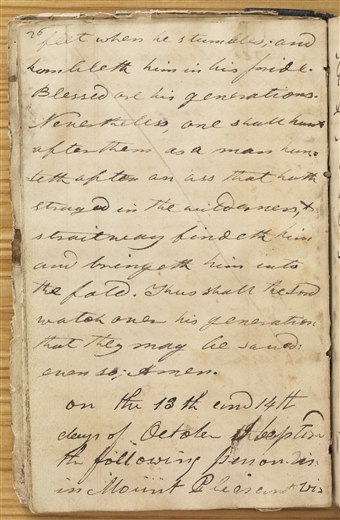 26
feet when he stumbles; and
humbleth him in his pride.
Blessed are his generations.
Nevertheless, one shall hunt
after them as a man hun-
teth after an ass that hath
strayed in the wilderness, &
straitway findeth him
and bringeth him into
the fold. Thus shall the Lord
watch over his generation
that they may be saved:
even so; Amen.
on the 13th and 14th
days of October I baptized
the following person
in Mount Pleasant viz